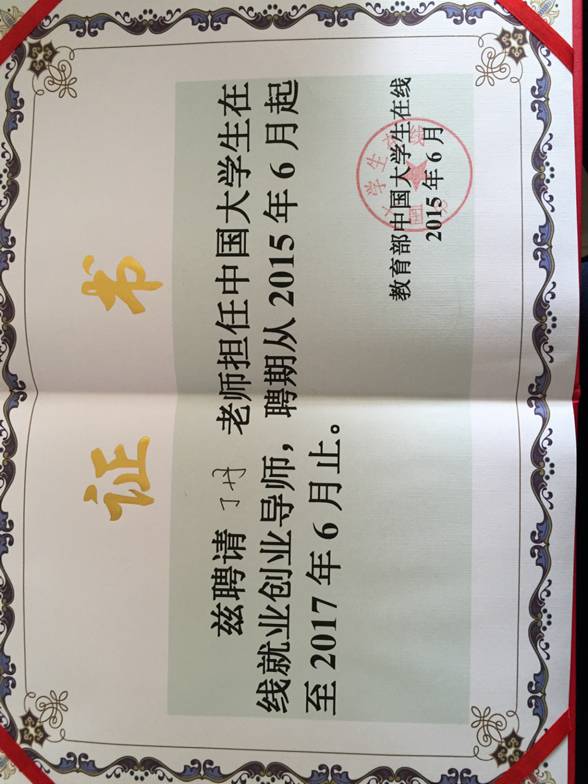 证书
兹聘请 丁丹 老师担任中国大学生在
线就业创业导师，聘期从2015年6月起
至2017年6月止。
教育部中国大学生在线
2015年6月